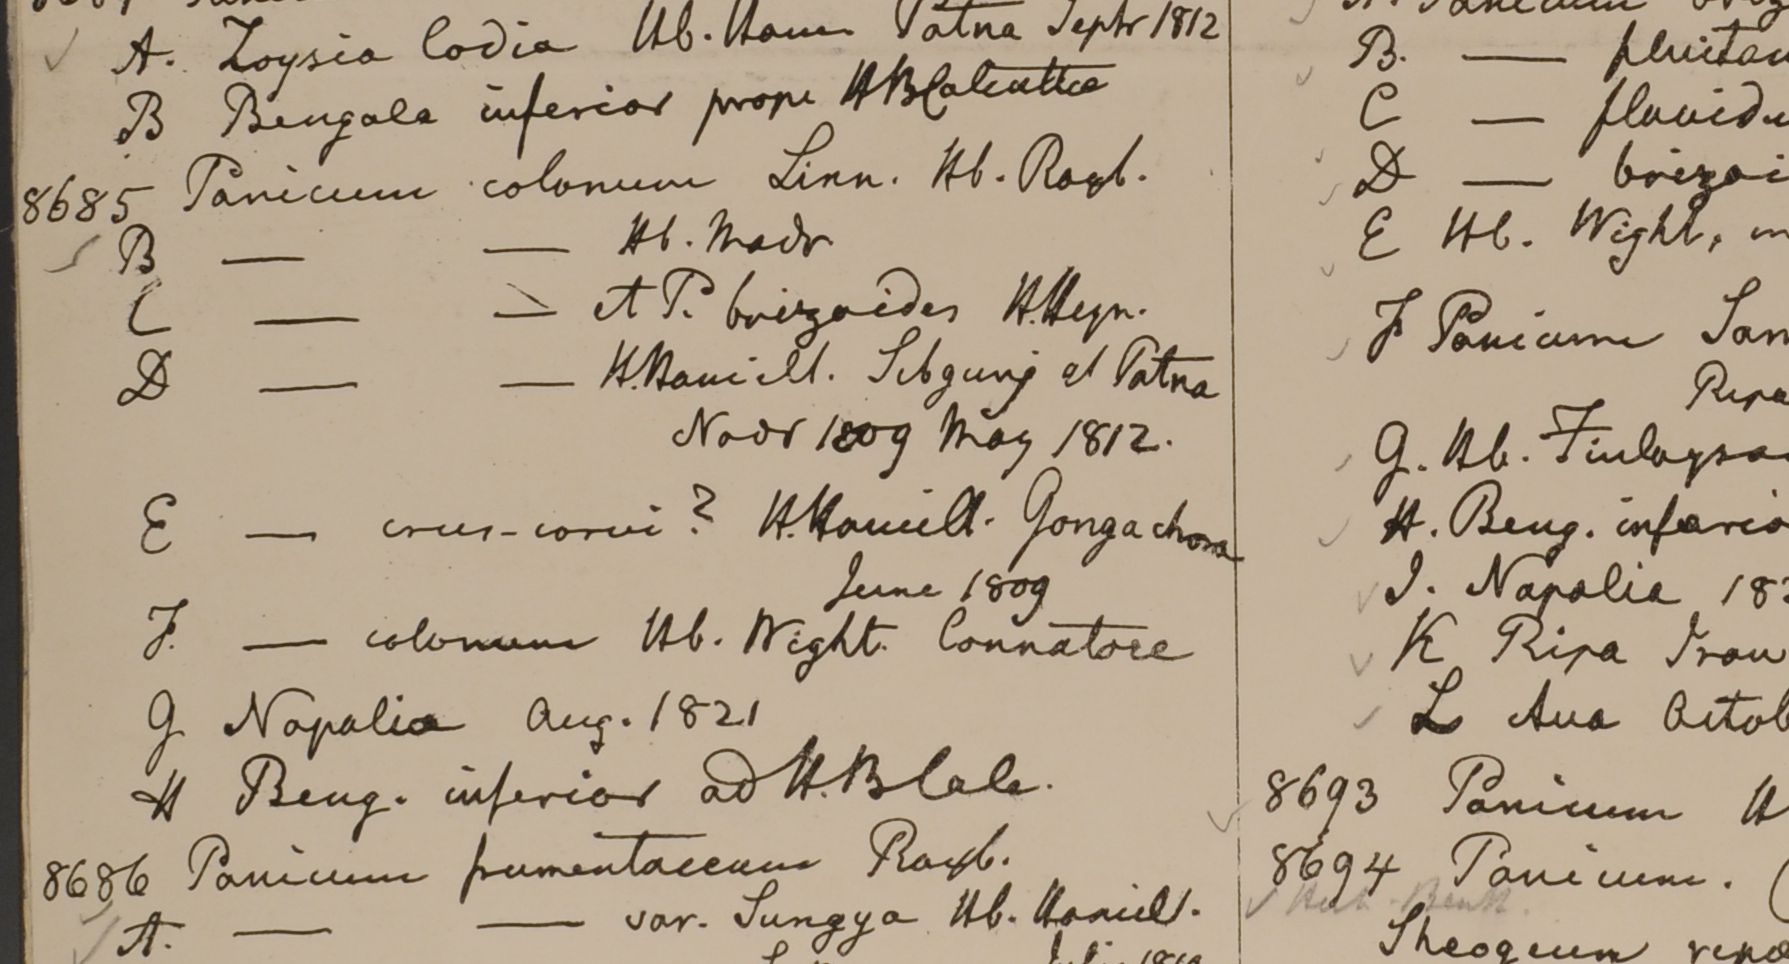 A. Zoysia Codia Hb. Ham Patna Septr 1812
B Bengala inferior prope HBCalcuttae
8685 Panicum colonum Linn. Hb. Roxb.
B — — Hb. Madr
C — — et P. brizoides H.Heyn.
D — — H.Hamilt. Sibgunj et Patna
Novr 1809 May 1812.
E — crus-corvi? H.Hamilt. Gongachora
June 1809
F. — colonum Hb. Wight. Connatore
G Napalia Aug. 1821
H Beng. inferior ad H.B Calc.
8686 Panicum frumentaceum Roxb.
A. — — var. Sungya Hb. Hamilt.
B. — fluitan
C — fluvidu
D — brizoi
E Hb. Wight, in
F Panicum San
Ripa
G. Hb. Finlayson
H. Beng. inferio
I. Napalia 182
K Ripa Irau
L Ava Octob
8693 Panicum H
8694 Panicum. (
Sheogeum repo